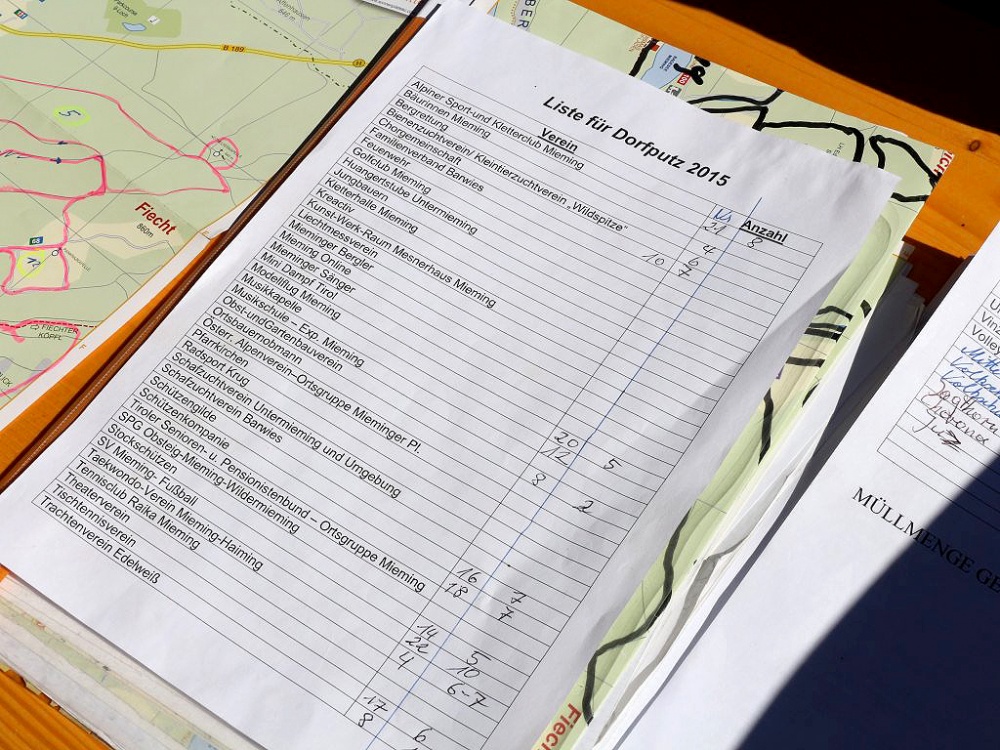 B 189
H
5
Fiecht
860m
68
12
FIECHTER
KÖPFL
Liste für Dorfputz 2015
Verein
Anzahl
Alpiner Sport-und Kletterclub Mieming
Bäurinnen Mieming
Bergrettung
Bienenzuchtverein/ Kleintierzuchtverein „Wildspitze“
Chorgemeinschaft
Familienverband Barwies
Feuerwehr
Golfclub Mieming
Huangertstube Untermieming
Jungbauern
Kletterhalle Mieming
Kreactiv
Kunst-Werk-Raum Mesnerhaus Mieming
Liechtmessverein
Mieminger Bergler
Mieming Online
Mieminger Sänger
Mini Dampf Tirol
Modellflug Mieming
Musikkapelle
Musikschule – Exp. Mieming
Obst-undGartenbauverein
Ortsbauernobmann
Österr. Alpenverein–Ortsgruppe Mieminger Pl.
Pfarrkirchen
Radsport Krug
Schafzuchtverein Untermieming und Umgebung
Schafzuchtverein Barwies
Schützengilde
Schützenkompanie
Tiroler Senioren- u. Pensionistenbund – Ortsgruppe Mieming
SPG Obsteig-Mieming-Wildermieming
Stockschützen
SV Mieming- Fußball
Taekwondo-Verein Mieming-Haiming
Tennisclub Raika Mieming
Theaterverein
Tischtennisverein
Trachtenverein Edelweiß
Nr.
21 8
4
10 6
7
20
12 5
3
2
16
18 7
7
14
22 5
4 10
6-7
17
8 6
MÜLLMENGE